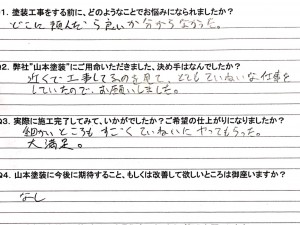 Q1. 塗装工事をする前に、どのようなことでお悩みになられましたか？
どこに頼んだら良いか分からなかった。
Q2. 弊社"山本塗装"にご用命いただきました、決め手はなんでしたか？
近くで工事してるのを見て、とてもていねいな仕事を
していたので、お願いしました。
Q3. 実際に施工完了してみて、いかがでしたか？ご希望の仕上がりになりましたか？
細かいところもすごくていねいにやってもらった。
大満足。
Q4. 山本塗装に今後に期待すること、もしくは改善して欲しいところは御座いますか？
なし